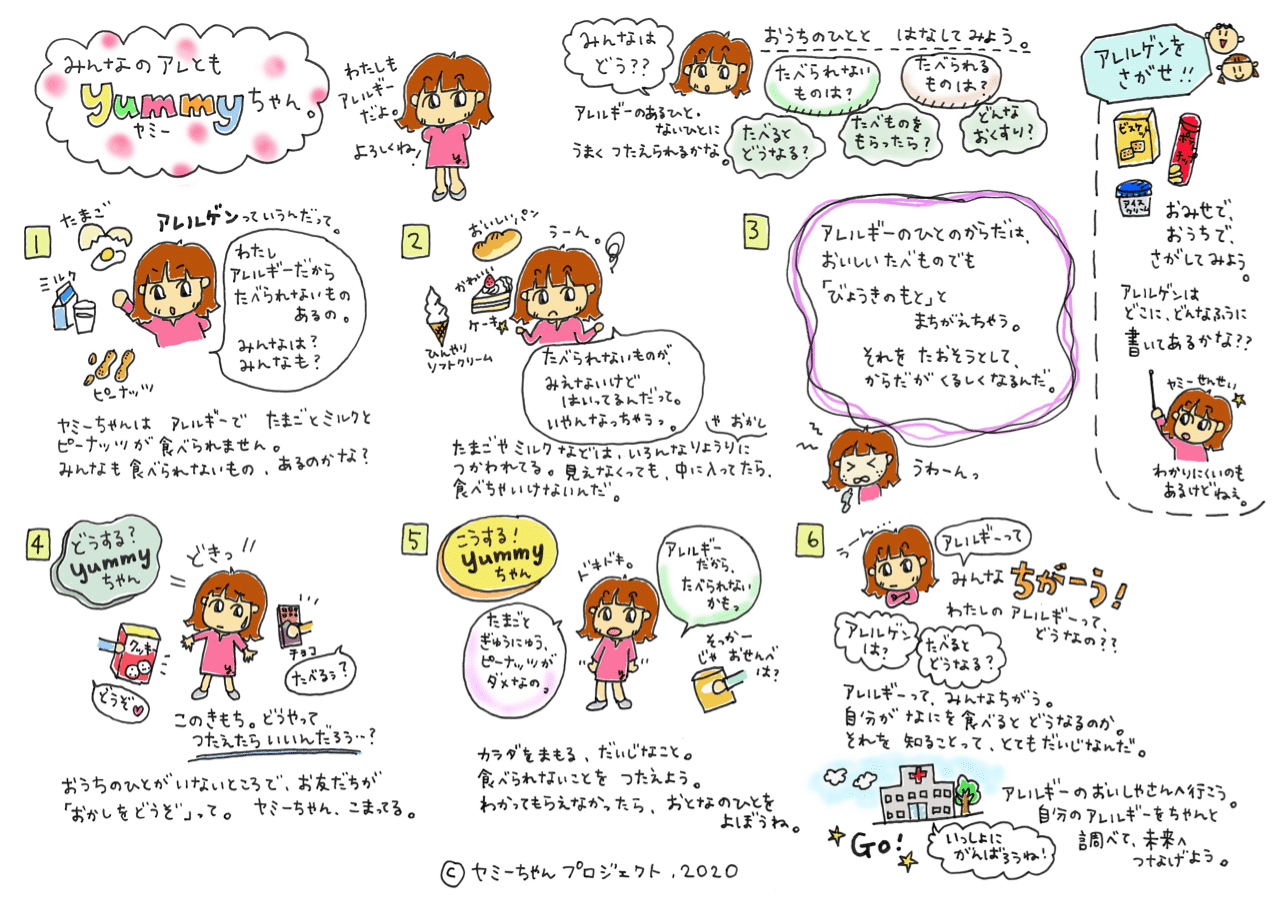 みんなのアレとも
yummyちゃん。
ヤミー
わたしも
アレルギー
だよ。
よろしくね!
みんなは
どう??
おうちのひとと はなしてみよう。
アレルギーのあるひと。
ないひとに
うまく つたえられるかな。
たべられない
ものは?
たべられる
ものは?
たべると
どうなる?
たべものを
もらったら?
どんな
おくすり?
アレルゲンを
さがせ!!
ビスケット
ポテト
チップ
アイス
クリーム
おみせで、
おうちで、
さがしてみよう。
アレルゲンは
どこに、どんなふうに
書いてあるかな??
ヤミーせんせい
わかりにくいのも
あるけどねぇ。
1
たまご
ミルク
ピーナッツ
アレルゲンっていうんだって。
わたし
アレルギーだから
たべられないもの
あるの。
みんなは?
みんなも?
ヤミーちゃんは アレルギーで たまごとミルクと
ピーナッツが食べられません。
みんなも食べられないもの、あるのかな?
2
おいしいパン
うーん。
かわいい
ケーキ
ひんやり
ソフトクリーム
たべられないものが、
みえないけど
はいってるんだって。
いやんなっちゃうっ。
や おかし
たまごやミルクなどは、いろんなりょうりに
つかわれてる。見えなくっても、中に入ってたら、
食べちゃいけないんだ。
3
アレルギーのひとのからだは、
おいしいたべものでも
「びょうきのもと」と
まちがえちゃう。
それを たおそうとして、
からだが くるしくなるんだ。
うわーんっ
4
どうする?
yummy
ちゃん
どきっ!!
クッキー
どうぞ♥
チョコ
たべるぅ?
このきもち。どうやって
つたえたらいいんだろう…?
おうちのひとがいないところで、お友だちが
「おかしをどうぞ」って。 ヤミーちゃん、こまってる。
5
こうする!
yummy
ちゃん
ドキドキ。
アレルギー
だから、
たべられない
かもっ
たまごと
ぎゅうにゅう、
ピーナッツが
ダメなの。
そっかー
じゃ おせんべ
は?
カラダをまもる、だいじなこと。
食べられないことを つたえよう。
わかってもらえなかったら、おとなのひとを
よぼうね。
6
うーん…
アレルギーって
みんな ちがーう!
わたしの アレルギーって、
どうなの??
アレルゲン
は?
たべると
どうなる?
アレルギーって、みんなちがう。
自分が なにを食べると どうなるのか。
それを 知ることって、とてもだいじなんだ。
アレルギーのおいしゃさんへ行こう。
自分のアレルギーをちゃんと
調べて、未来へ
つなげよう。
GO!
いっしょに
がんばろうね!
© ヤミーちゃんプロジェクト, 2020